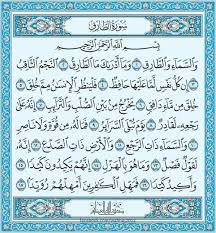 سُورَةُ الطَّارِقِ
بِسْمِ اللَّهِ الرَّحْمَٰنِ الرَّحِيمِ
وَالسَّمَاءِ وَالطَّارِقِ ١ وَمَا أَدْرَىٰكَ مَا الطَّارِقُ ٢ النَّجْمُ الثَّاقِبُ
٣ إِن كُلُّ نَفْسٍ لَّمَّا عَلَيْهَا حَافِظٌ ٤ فَلْيَنظُرِ الْإِنسَٰنُ مِمَّ خُلِقَ ٥ خُلِقَ
مِن مَّاءٍ دَافِقٍ ٦ يَخْرُجُ مِن بَيْنِ الصُّلْبِ وَالتَّرَائِبِ ٧ إِنَّهُ عَلَىٰ
رَجْعِهِ لَقَادِرٌ ٨ يَوْمَ تُبْلَى السَّرَائِرُ ٩ فَمَا لَهُ مِن قُوَّةٍ وَلَا نَاصِرٍ
١٠ وَالسَّمَاءِ ذَاتِ الرَّجْعِ ١١ وَالْأَرْضِ ذَاتِ الصَّدْعِ ١٢ إِنَّهُ
لَقَوْلٌ فَصْلٌ ١٣ وَمَا هُوَ بِالْهَزْلِ ١٤ إِنَّهُمْ يَكِيدُونَ كَيْدًا ١٥
وَأَكِيدُ كَيْدًا ١٦ فَمَهِّلِ الْكَٰفِرِينَ أَمْهِلْهُمْ رُوَيْدًا ١٧